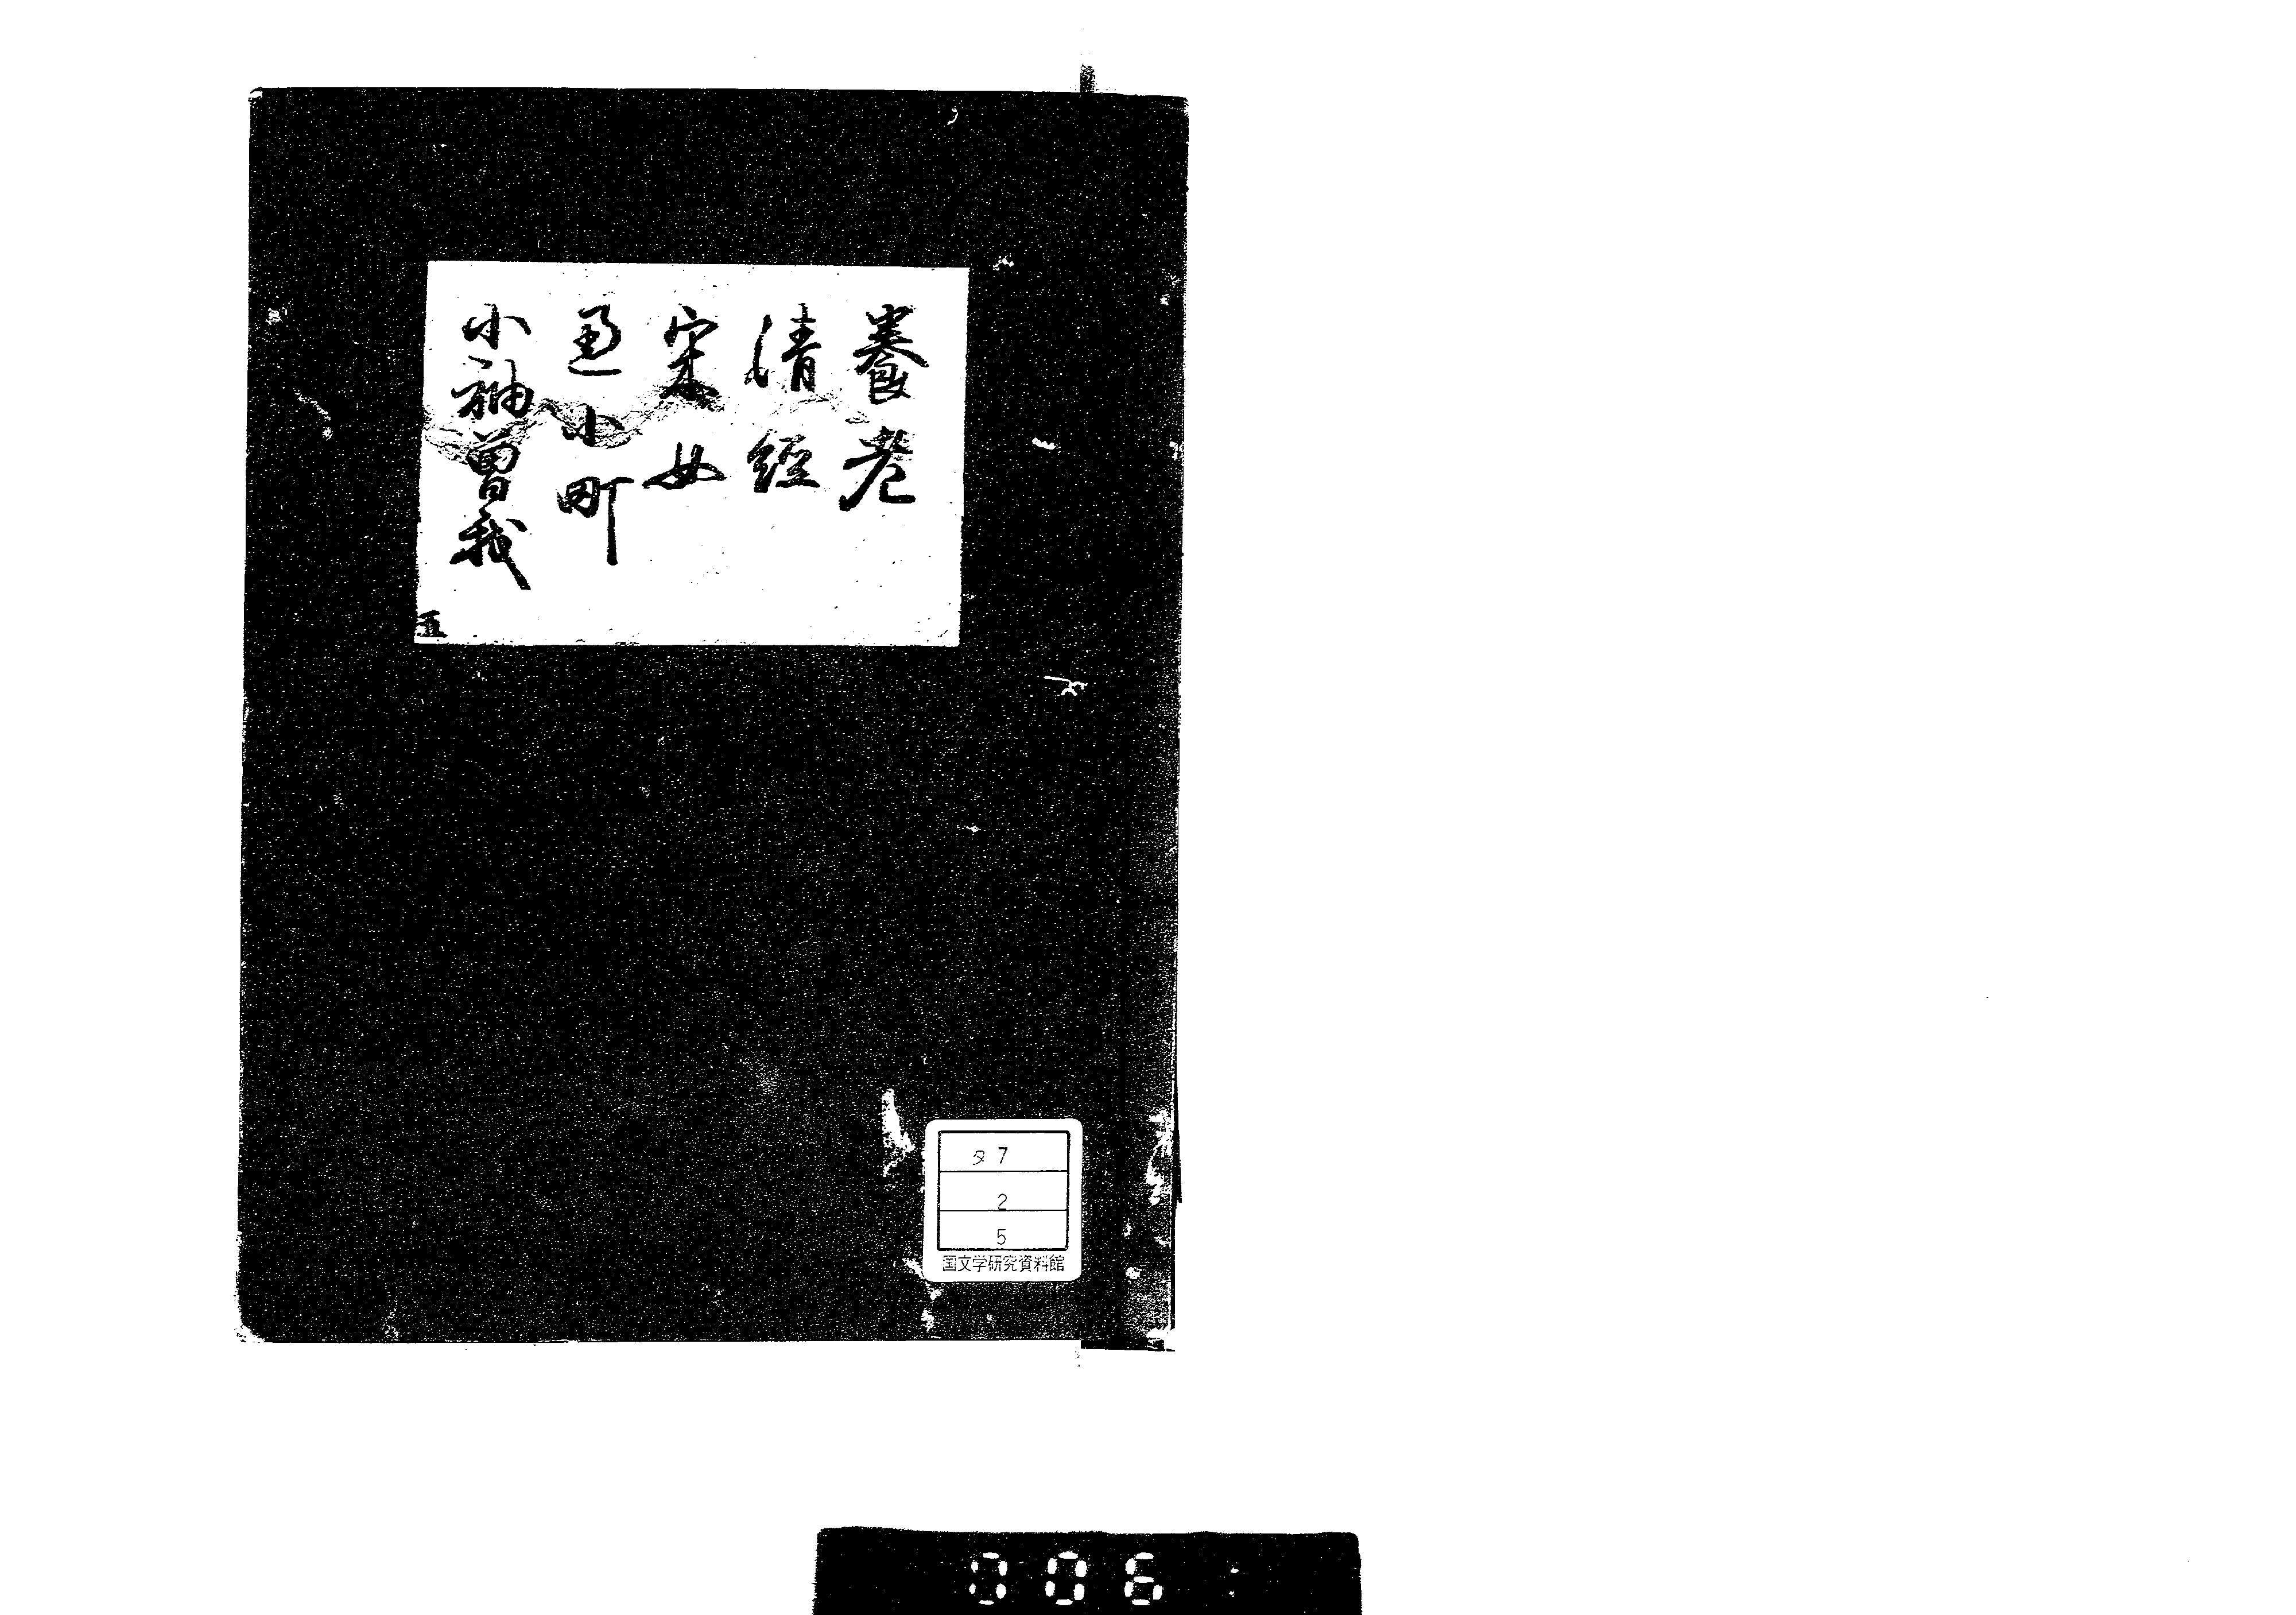 養老
清經
采女
通小町
小袖曽我
五
タ7
2
5
国文学研究資料館
006